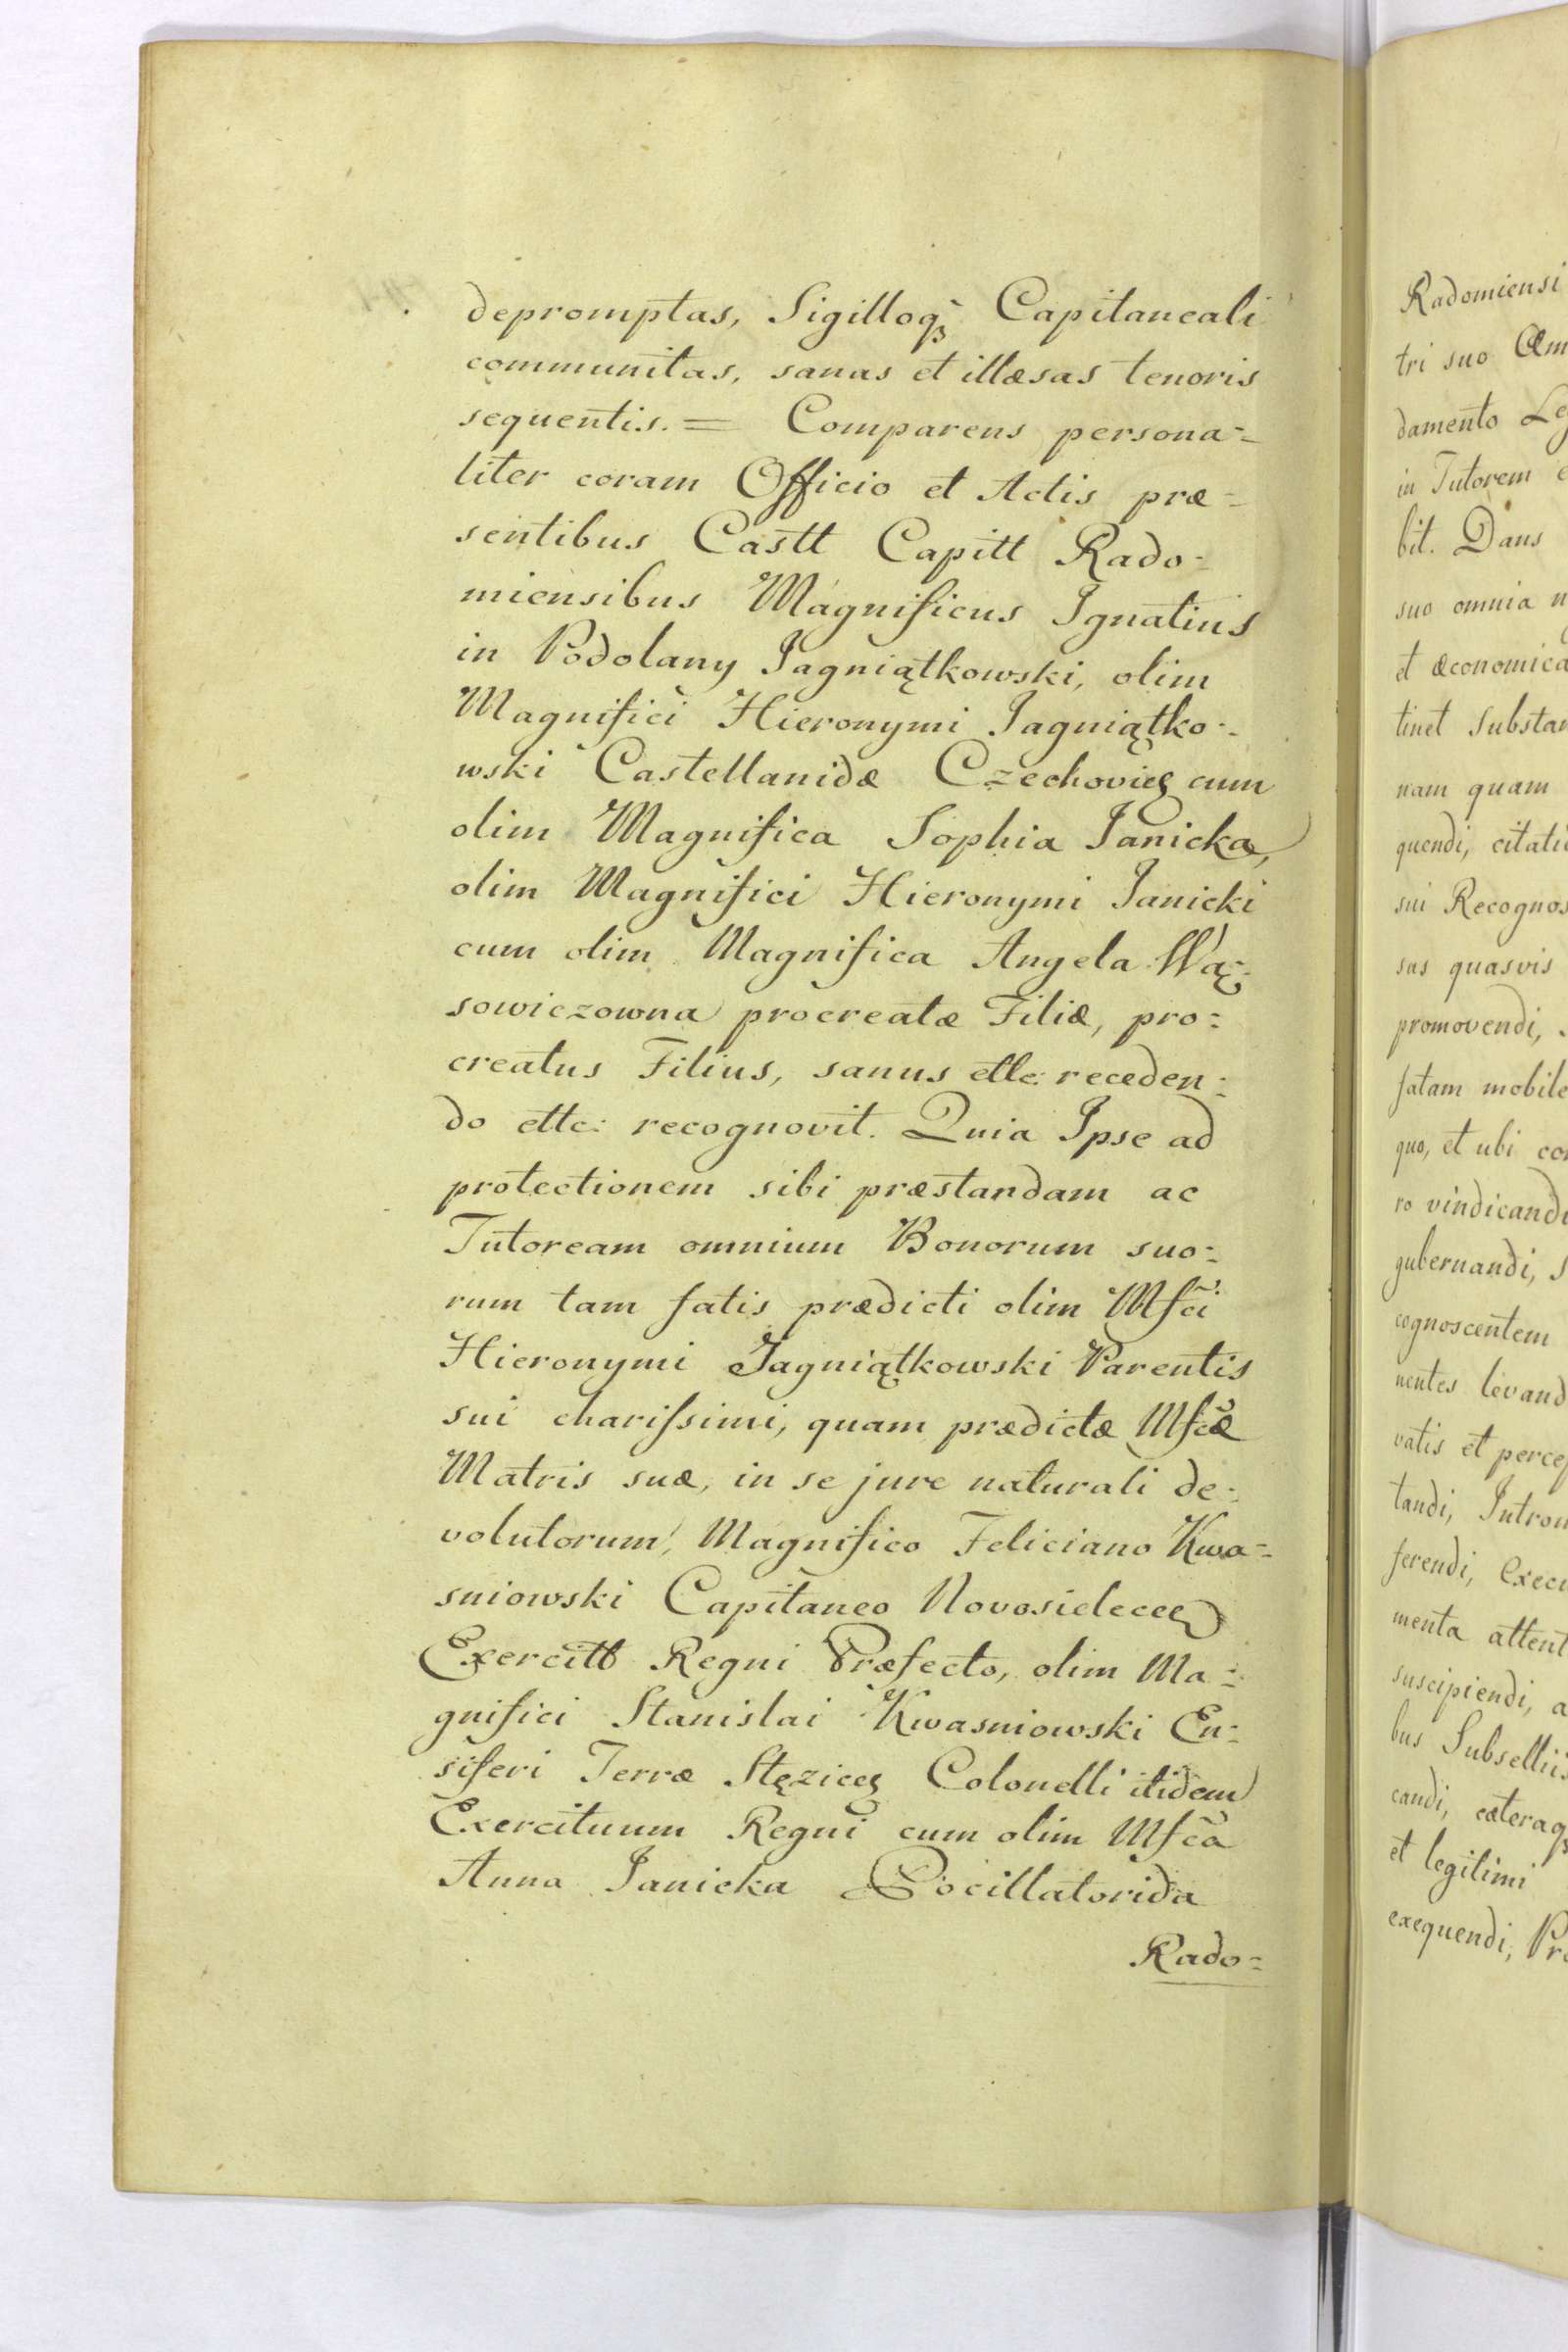 depromptas, Sigilloqꝫ Capitaneali
communitas, sanas et illæsas tenoris
sequentis. = Comparens persona=
liter coram Officio et Actis præ=
sentibus Castt Capitt Rado=
miensibus Magnificus Ignatius
in Podolany Jagniątkowski, olim
Magnifici Hieronymi Jagniątko=
wski Castellanidæ Czechovieꝫ cum
olim Magnifica Sophia Janicka,
olim Magnifici Hieronymi Janicki
cum olim Magnifica Angela Wą=
sowiczowna procreatæ Filiæ, pro=
creatus Filius, sanus ettc: receden=
do ettc: recognovit. Quia Ipse ad
protectionem sibi præstandam ac
Tutoream omnium Bonorum suo=
rum tam fatis prædicti olim Mfci
Hieronymi Jagniątkowski Parentis
sui charissimi, quam prædictæ Mfcæ
Matris suæ, in se jure naturali de=
volutorum, Magnifico Feliciano Kwa=
sniowski Capitaneo Novosieleceꝫ
Exercitt Regni Præfecto, olim Ma=
gnifici Stanislai Kwasniowski En=
siferi Terræ Stęziceꝫ Colonelli itidem
Exercituum Regni cum olim Mfca
Anna Janicka Pocillatorida
Rado=
Radomiensi
tri suo
damento
in Tutorem
bit. Dans
suo omnia
et œconomica
tinet
nam quam
quendi,
sui
sas quasvis
promovendi,
fatam mobile
quo, et ubi
ro
gubernandi,
cognoscentem
nentes
vatis et
tandi,
ferendi,
menta
suscipiendi,
bus
candi,
et legitimi
exequendi,